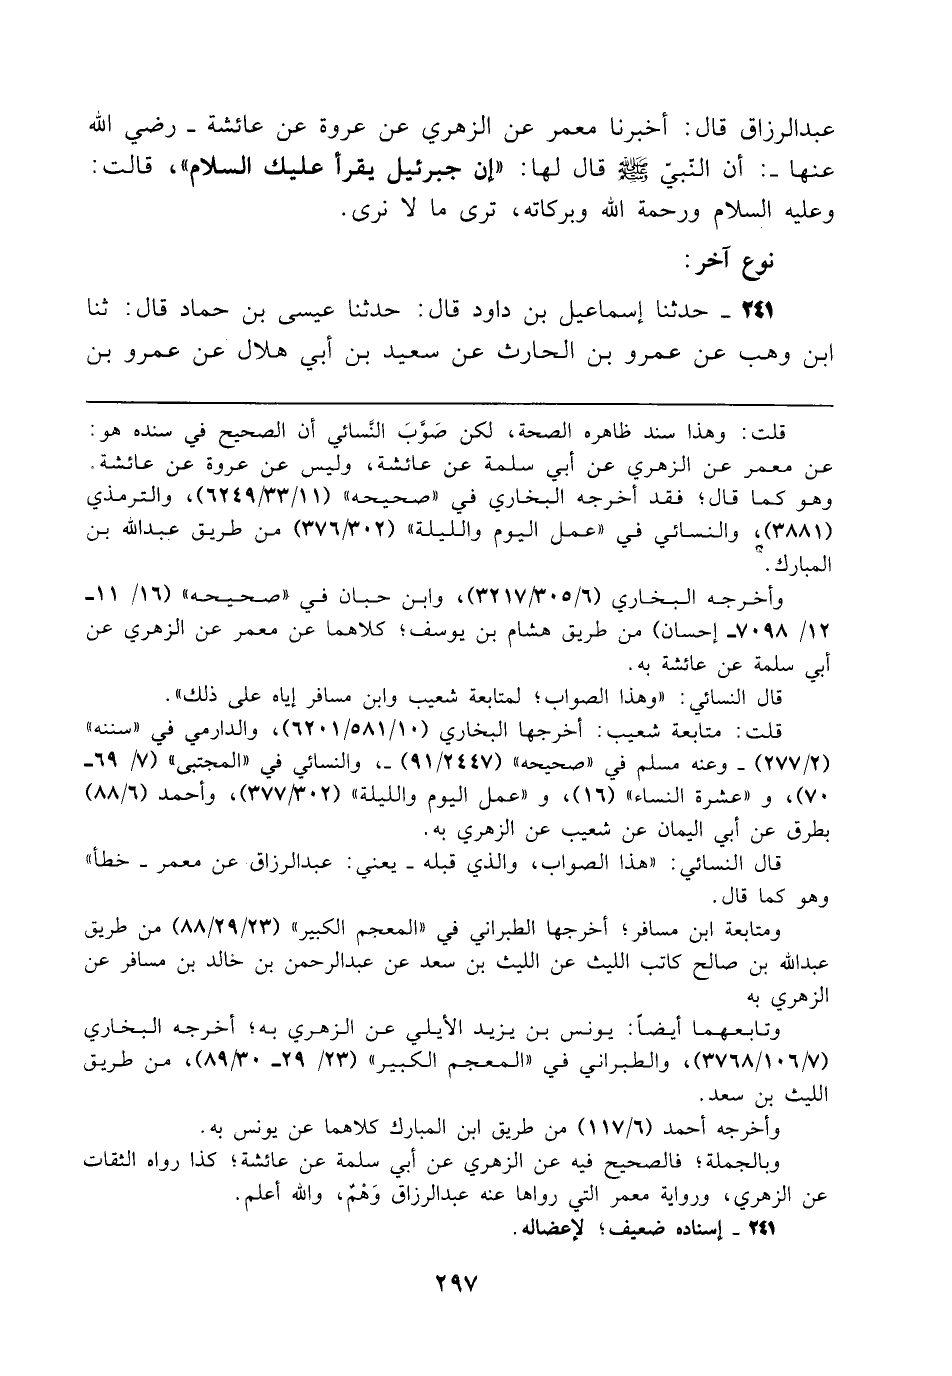 عبدالرزاق قال: أخبرنا معمر عن الزهري عن عروة عن عائشة ـ رضي الله
عنها ـ: أن النّبيّ ﷺ قال لها: «إن جبرئيل يقرأ عليك السلام»، قالت:
وعليه السلام ورحمة الله وبركاته، ترى ما لا نرى.
نوع آخر:
٢٤١ ـ حدثنا إسماعيل بن داود قال: حدثنا عيسى بن حماد قال: ثنا
ابن وهب عن عمرو بن الحارث عن سعيد بن أبي هلال عن عمرو بن
قلت: وهذا سند ظاهره الصحة، لكن صَوَّبَ النَّسائي أن الصحيح في سنده هو:
عن معمر عن الزهري عن أبي سلمة عن عائشة، وليس عن عروة عن عائشة.
وهو كما قال؛ فقد أخرجه البخاري في «صحيحه» (٦٢٤٩/٣٣/١١)، والترمذي
(٣٨٨١)، والنسائي في «عمل اليوم والليلة» (٣٧٦/٣٠٢) من طريق عبدالله بن
المبارك.
وأخرجه البخاري (٣٢١٧/٣٠٥/٦)، وابن حبان في «صحيحه» (١٦/ ١١ـ
١٢/ ٧٠٩٨ـ إحسان) من طريق هشام بن يوسف؛ كلاهما عن معمر عن الزهري عن
أبي سلمة عن عائشة به.
قال النسائي: «وهذا الصواب؛ لمتابعة شعيب وابن مسافر إياه على ذلك».
قلت: متابعة شعيب: أخرجها البخاري (٦٢٠١/٥٨١/١٠)، والدارمي في «سننه»
(٢٧٧/٢) ـ وعنه مسلم في «صحيحه» (٩١/٢٤٤٧) ـ، والنسائي في «المجتبى» (٧/ ٦٩ـ
٧٠)، و «عشرة النساء» (١٦)، و «عمل اليوم والليلة» (٣٧٧/٣٠٢)، وأحمد (٨٨/٦)
بطرق عن أبي اليمان عن شعيب عن الزهري به.
قال النسائي: «هذا الصواب، والذي قبله ـ يعني: عبدالرزاق عن معمر ـ خطأ»
وهو كما قال.
ومتابعة ابن مسافر؛ أخرجها الطبراني في «المعجم الكبير» (٨٨/٢٩/٢٣) من طريق
عبدالله بن صالح كاتب الليث عن الليث بن سعد عن عبدالرحمن بن خالد بن مسافر عن
الزهري به
وتابعهما أيضاً: يونس بن يزيد الأيلي عن الزهري به؛ أخرجه البخاري
(٣٧٦٨/١٠٦/٧)، والطبراني في «المعجم الكبير» (٢٣/ ٢٩ـ ٨٩/٣٠)، من طريق
الليث بن سعد.
وأخرجه أحمد (١١٧/٦) من طريق ابن المبارك كلاهما عن يونس به.
وبالجملة؛ فالصحيح فيه عن الزهري عن أبي سلمة عن عائشة؛ كذا رواه الثقات
عن الزهري، ورواية معمر التي رواها عنه عبدالرزاق وَهْمٌ، والله أعلم.
٢٤١ ـ إسناده ضعيف؛ لإعضاله.
٢٩٧